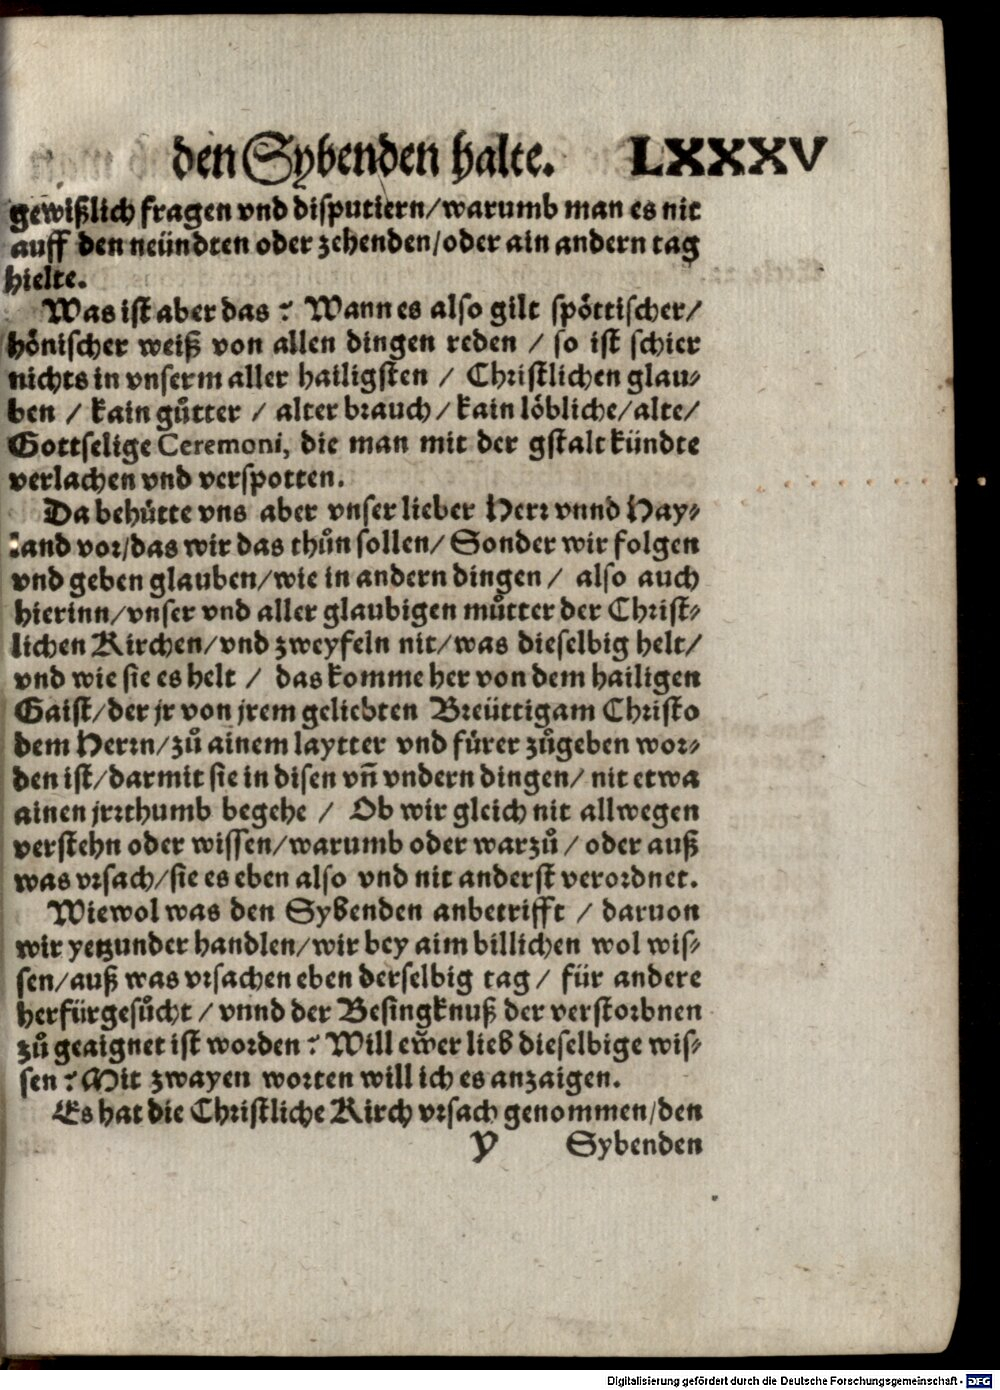 den Sybenden halte. LXXXV
gewißlich fragen vnd disputiern/warumb man es nit
auff den neündten oder zehenden/oder ain andern tag
hielte.
Was ist aber das? Wann es also gilt spöttischer/
hönischer weiß von allen dingen reden / so ist schier
nichts in vnserm aller hailigsten / Christlichen glau⸗
ben / kain gůtter / alter brauch / kain löbliche/alte/
Gottselige Ceremoni, die man mit der gstalt kündte
verlachen vnd verspotten.
Da behütte vns aber vnser lieber Herr vnnd Hay⸗
land vor/das wir das thůn sollen/ Sonder wir folgen
vnd geben glauben/wie in andern dingen / also auch
hierinn/vnser vnd aller glaubigen můtter der Christ⸗
lichen Kirchen/vnd zweyfeln nit/was dieselbig helt/
vnd wie sie es helt / das komme her von dem hailigen
Gaist/der jr von jrem geliebten Breüttigam Christo
dem Herrn/zů ainem laytter vnd fürer zůgeben wor⸗
den ist/darmit sie in disen vñ vndern dingen/ nit etwa
ainen jrrthumb begehe / Ob wir gleich nit allwegen
verstehn oder wissen/warumb oder warzů / oder auß
was vrsach/sie es eben also vnd nit anderst verordnet.
Wiewol was den Sybenden anbetrifft / daruon
wir yetzunder handlen/wir bey aim billichen wol wis⸗
sen/auß was vrsachen eben derselbig tag / für andere
herfürgesůcht / vnnd der Besingknuß der verstorbnen
zů geaignet ist worden? Will ewer lieb dieselbige wis⸗
sen? Mit zwayen worten will ich es anzaigen.
Es hat die Christliche Kirch vrsach genommen/den
Y Sybenden
Digitalisierung gefördert durch die Deutsche Forschungsgemeinschaft - DFG